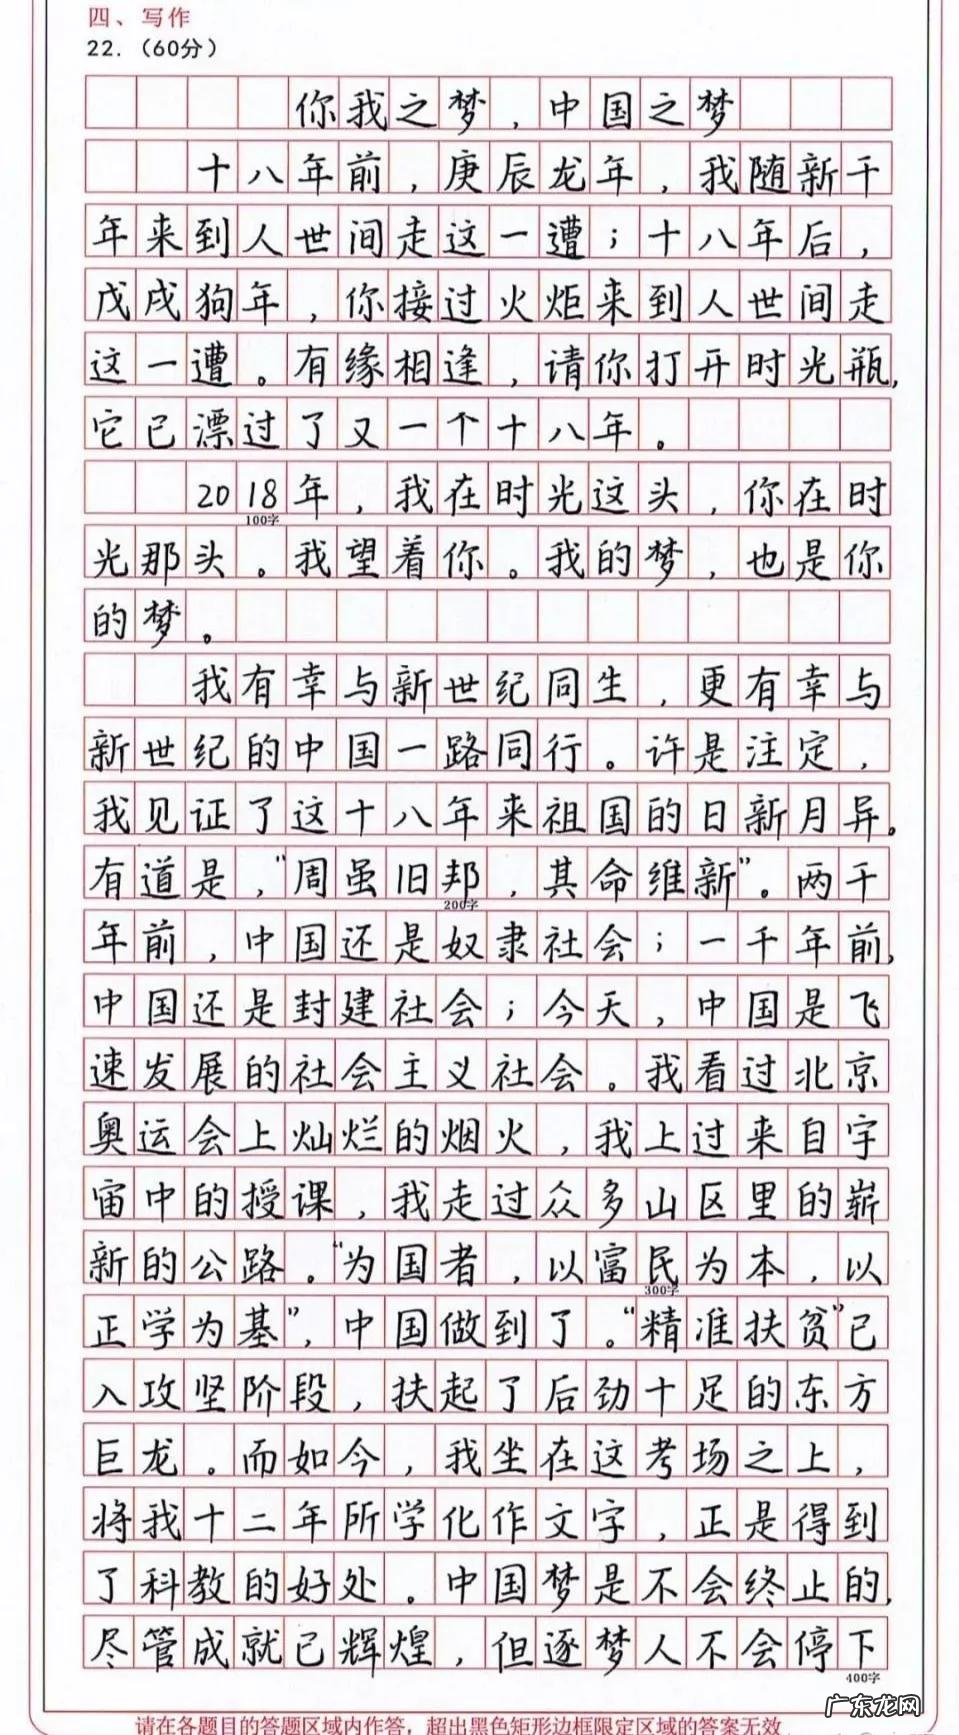 四、写作
22.（60分）
你我之梦，中国之梦
十八年前，庚辰龙年，我随新千
年来到人世间走这一遭；十八年后，
戊戌狗年，你接过火炬来到人世间走
这一遭。有缘相逢，请你打开时光瓶，
它已漂过了又一个十八年。
2018年，我在时光这头，你在时
100字
光那头。我望着你。我的梦，也是你
的梦。
我有幸与新世纪同生，更有幸与
新世纪的中国一路同行。许是注定，
我见证了这十八年来祖国的日新月异。
有道是，“周虽旧邦，其命维新”。两千
200字
年前，中国还是奴隶社会；一千年前，
中国还是封建社会；今天，中国是飞
速发展的社会主义社会。我看过北京
奥运会上灿烂的烟火，我上过来自宇
宙中的授课，我走过众多山区里的崭
新的公路。“为国者，以富民为本，以
300字
正学为基”，中国做到了。“精准扶贫”已
入攻坚阶段，扶起了后劲十足的东方
巨龙。而如今，我坐在这考场之上，
将我十二年所学化作文字，正是得到
了科教的好处。中国梦是不会终止的，
尽管成就已辉煌，但逐梦人不会停下
400字
广东龙网
请在各题目的答题区域内作答，超出黑色矩形边框限定区域的答案无效